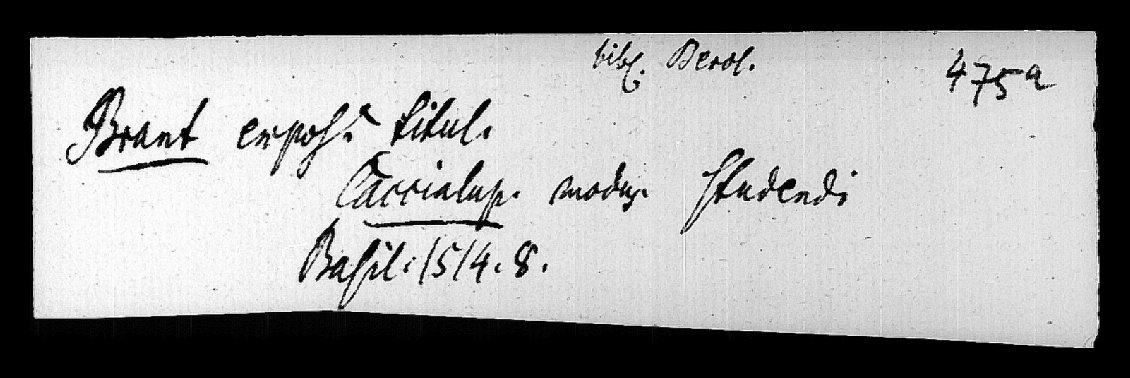 bibl. Berol.
475a
Brant expos. titul.
Caccialup. modus studendi
Basil. 1514. 8.